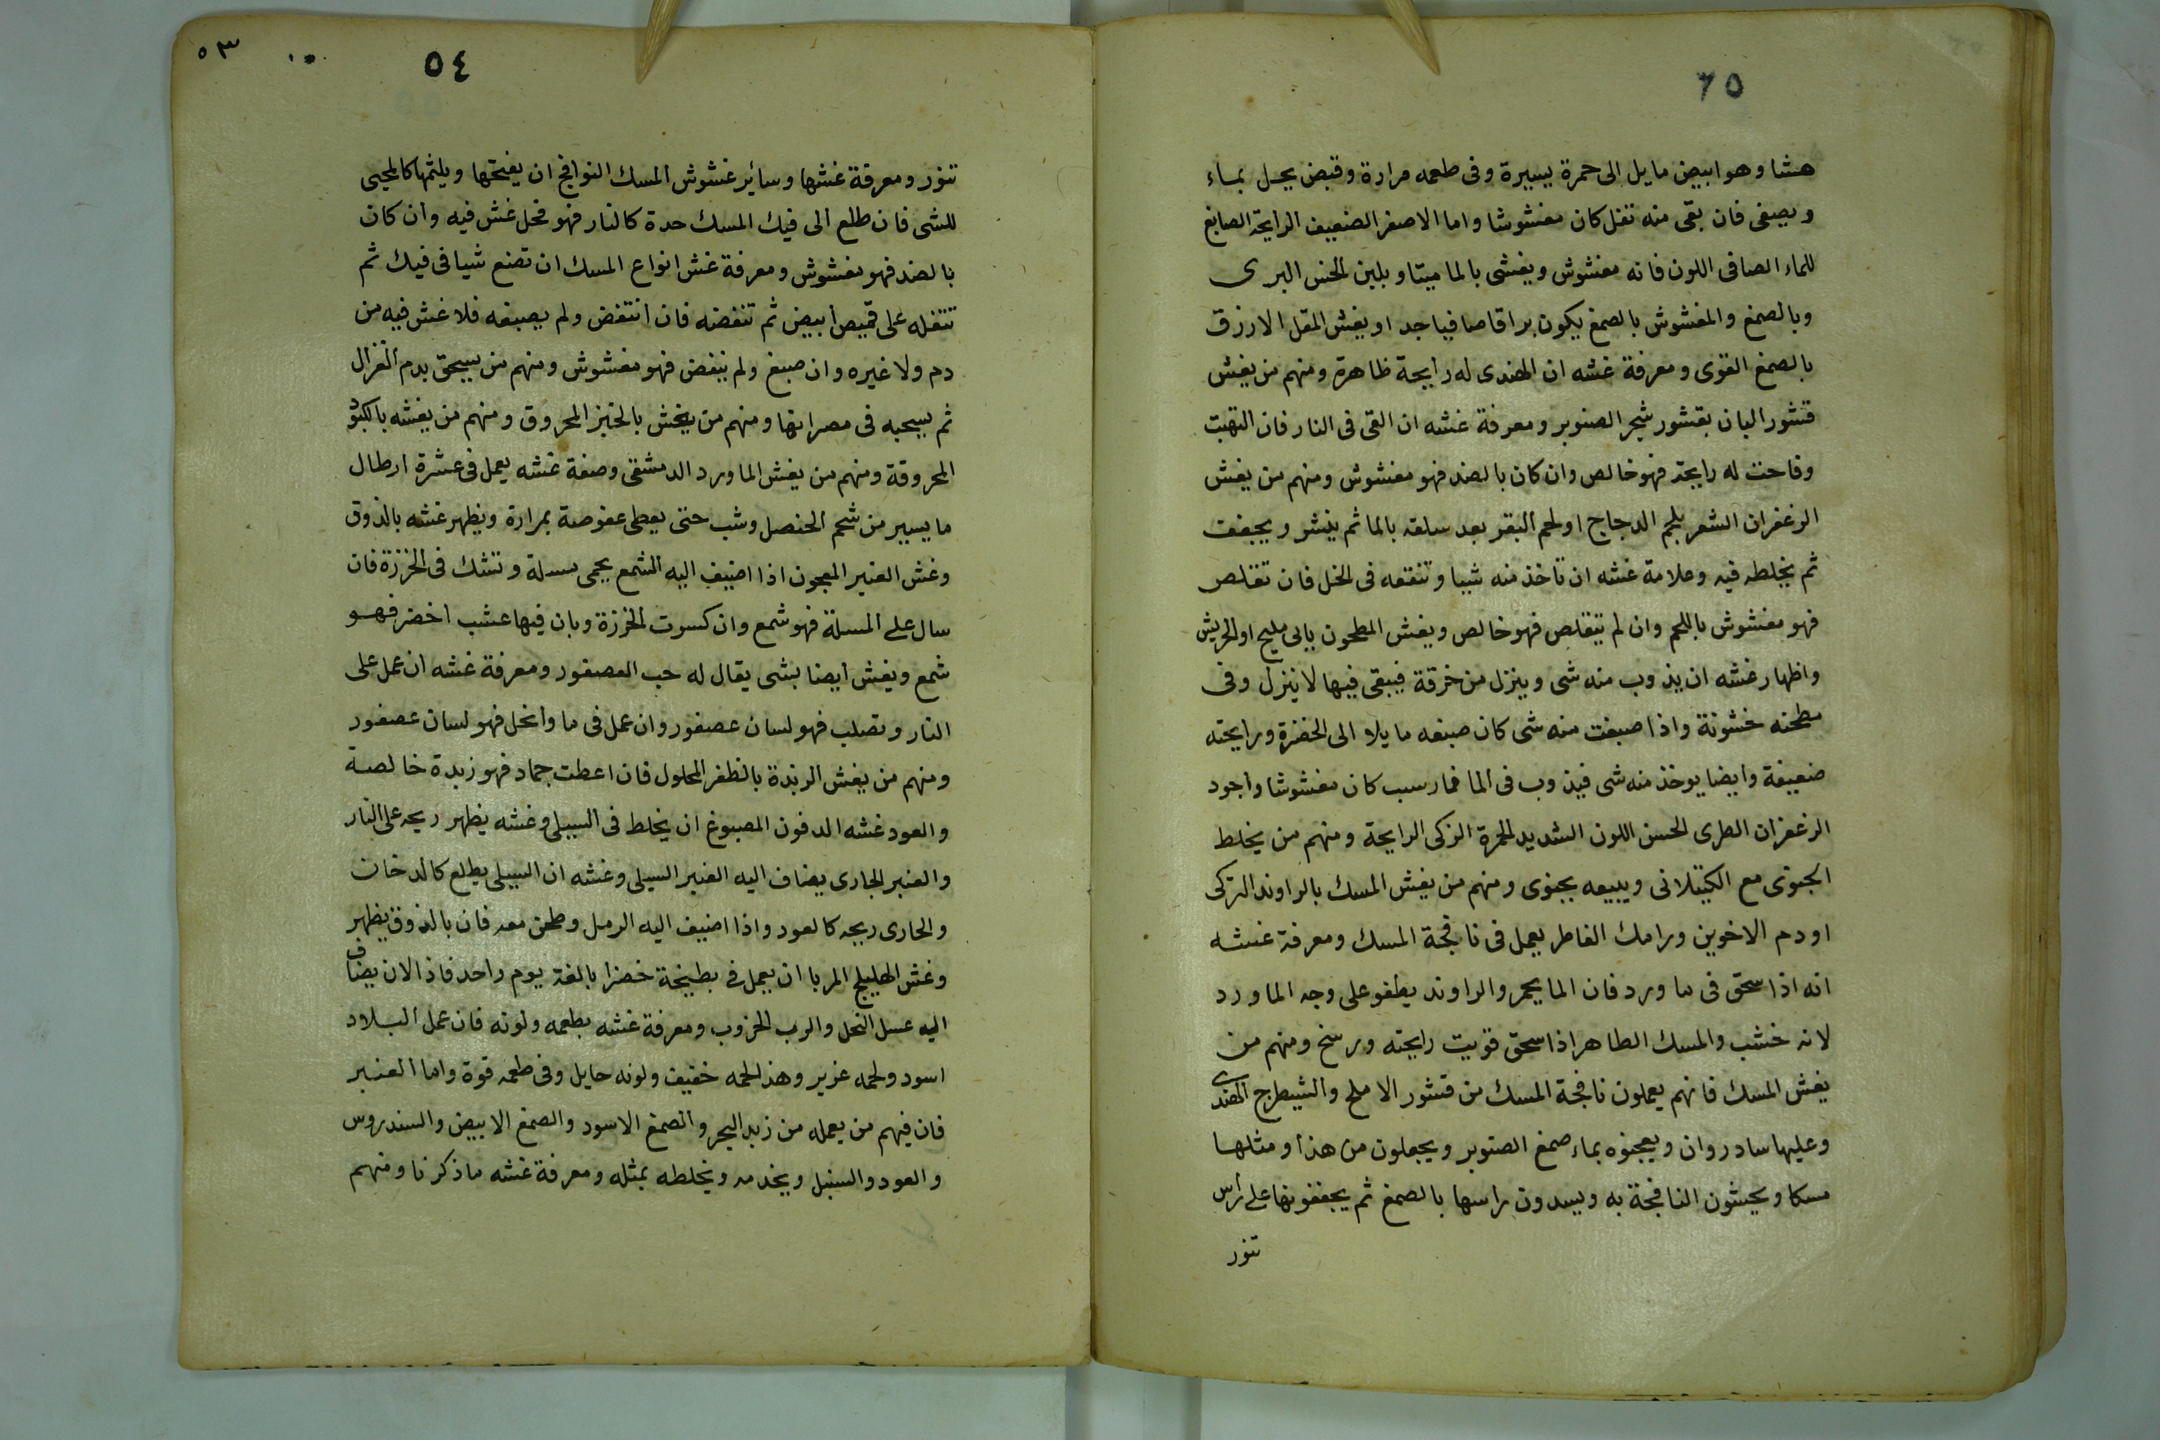 ٦٥
هشا وهو ابيض مايل الى حمرة يسيرة وفى طعمه مرارة وقبض يحل بماء
ويصفى فان بقى منه تفل كان مغشوشا واما الاصفر الضعيف الرايحة الصابغ
للماء الصافى اللون فانه مغشوش ويغشى بالماميتا وبلبن الخس البرى
وبالصمغ والمغشوش بالصمغ يكون براقا صافيا جدا ويغش المقل الازرق
بالصمغ القوى ومعرفة غشه ان الهندى له رايحة ظاهرة ومنهم من يغش
قشور البان بقشور شجر الصنوبر ومعرفة غشه ان القى فى النار فان التهبت
وفاحت له رايحة فهو خالص وان كان بالضد فهو مغشوش ومنهم من يغش
الزعفران الشعر بلحم الدجاج او لحم البقر بعد سلقه بالما ثم ينشر ويجفف
ثم يخلطه فيه وعلامة غشه ان تاخذ منه شيا وتنقعه فى الخل فان تقلص
فهو مغشوش باللحم وان لم يتقلص فهو خالص ويغش المطحون بابى مليح او الحريش
واظهار غشه ان يذوب منه شى وينزل من خرقة فيبقى فيها لا ينزل وفى
مطحنه خشونة واذا صبغت منه شى كان صبغه مايلا الى الخضرة ورايحته
ضعيفة وايضا يوخذ منه شى فيذوب فى الما فما رسب كان مغشوشا واجود
الزعفران الطرى الحسن اللون الشديد الحمرة الزكى الرايحة ومنهم من يخلط
الجنوى مع الكيتلانى ويبيعه بجنوى ومنهم من يغش المسك بالراوند التركى
او دم الاخوين ورامك الفاطر يعمل فى نافجة المسك ومعرفة غشه
انه اذا سحق فى ما ورد فان الما يحمر والراوند يطفو على وجه الما ورد
لانه خشب والمسك الطاهر اذا سحق قويت رايحته ورسخ ومنهم من
يغش المسك فانهم يعملون نافجة المسك من قشور الاملح والشيطرج الهندى
وعليها سادروان ويعجنوه بماء صمغ الصنوبر ويجعلون من هذا ومثلها
مسكا ويحيشون النافجة به ويسدون راسها بالصمغ ثم يجففونها على راس
تنور
٥٣
٥٤
تنور ومعرفة غشها وسائر غشوش المسك النوافج ان يفتحها ويلثمها كالمحيى
للشى فان طلع الى فيك المسك حدة كالنار فهو فحل غش فيه وان كان
بالضد فهو مغشوش ومعرفة غش انواع المسك ان تضع شيا فى فيك ثم
تتفله على قميص ابيض ثم تنفضه فان انتفض ولم يصبغه فلا غش فيه من
دم ولا غيره وان صبغ ولم ينفض فهو مغشوش ومنهم من يسحق بدم الغزال
ثم يسحبه فى مصرانها ومنهم من يغش بالخبز المحروق ومنهم من يغشه بالكبود
المحروقة ومنهم من يغش الماورد الدمشقى وصفة غشه يعمل فى عشرة ارطال
ما يسير من شحم الحنصل وشب حتى يعطى عفوصة بمرارة ويظهر غشه بالذوق
وغش العنبر المعجون اذا اضيف اليه الشمع يحمى مسلة وتشك فى الخرزة فان
سال على المسلة فهو شمع وان كسرت الخرزة وبان فيها عشب اخضر فهو
شمع ويغش ايضا بشى يقال له حب العصفور ومعرفة غشه ان عمل على
النار وتصلب فهو لسان عصفور وان عمل فى ما وانحل فهو لسان عصفور
ومنهم من يغش الزبدة بالظفر المحلول فان اعطت جماد فهو زبدة خالصة
والعود غشه المدفون المصبوغ ان يخلط فى السيلى وغشه يظهر ريحه على النار
والعنبر الجارى يضاف اليه العنبر السيلى وغشه ان السيلى يطلع كالدخان
والجارى ريحه كالعود واذا اضيف اليه الرمل وطحن معه فان بالذوق يظهر
وغش الهليلج المربا ان يعمل فى بطيخة خضرا بالغة يوم واحد فاذا لان يضاف
اليه عسل النحل والرب الخروب ومعرفة غشه بطعمه ولونه فان عمل البلاد
اسود ولحمه غزير وهذا لحمه خفيف ولونه حايل وفى طعمه قوة واما العنبر
فان فيهم من يعمله من زبد البحر والصمغ الاسود والصمغ الابيض والسندروس
والعود والسنبل ويخدمه ويخلطه بمثله ومعرفة غشه ما ذكرنا ومنهم